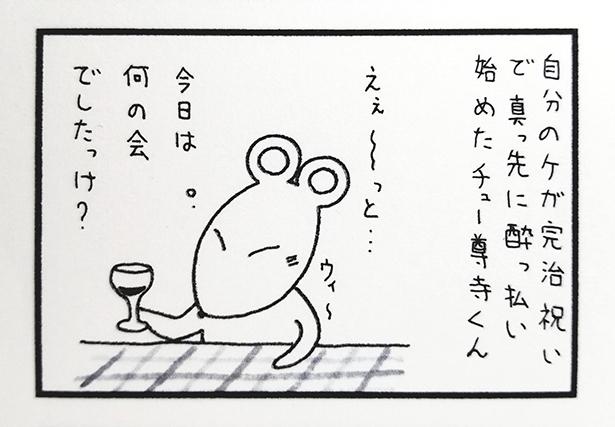 自分のケガ完治祝い
で真っ先に酔っ払い
始めたチュー尊寺くん
えぇ〜〜っと…
ウィ〜
今日は
何の会
でしたっけ？